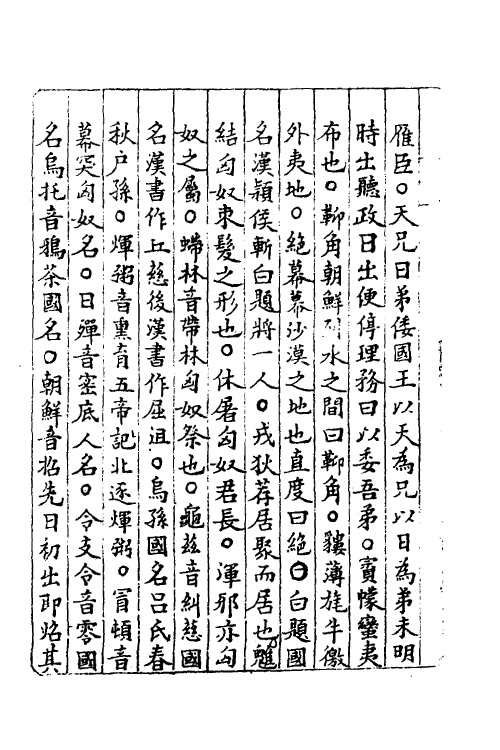 雁臣○天兄日弟倭國王以天為兄以日為弟未明
時出聽政日出便停理務曰以委吾弟○賨幏蠻夷
布也○鞹角朝鮮洌水之間曰鞹角○氀薄旄牛徼
外夷地○絶幕幕沙漠之地也直度曰絶○白題國
名漢潁侯斬白題將一人○戎狄荐居聚而居也魋
結匈奴朿髮之形也○休屠匈奴君長○渾邪亦匈
奴之屬○蹛林音帶林匈奴祭也○龜兹音糾慈國
名漢書作丘慈後漢書作屈沮○烏孫國名吕氏春
秋户孫○煇粥音熏育五帝記北逐煇粥○冒頓音
幕突匈奴名○日磾音密底人名○令支令音零國
名烏托音鵶茶國名○朝鮮音招先日初出即炤其